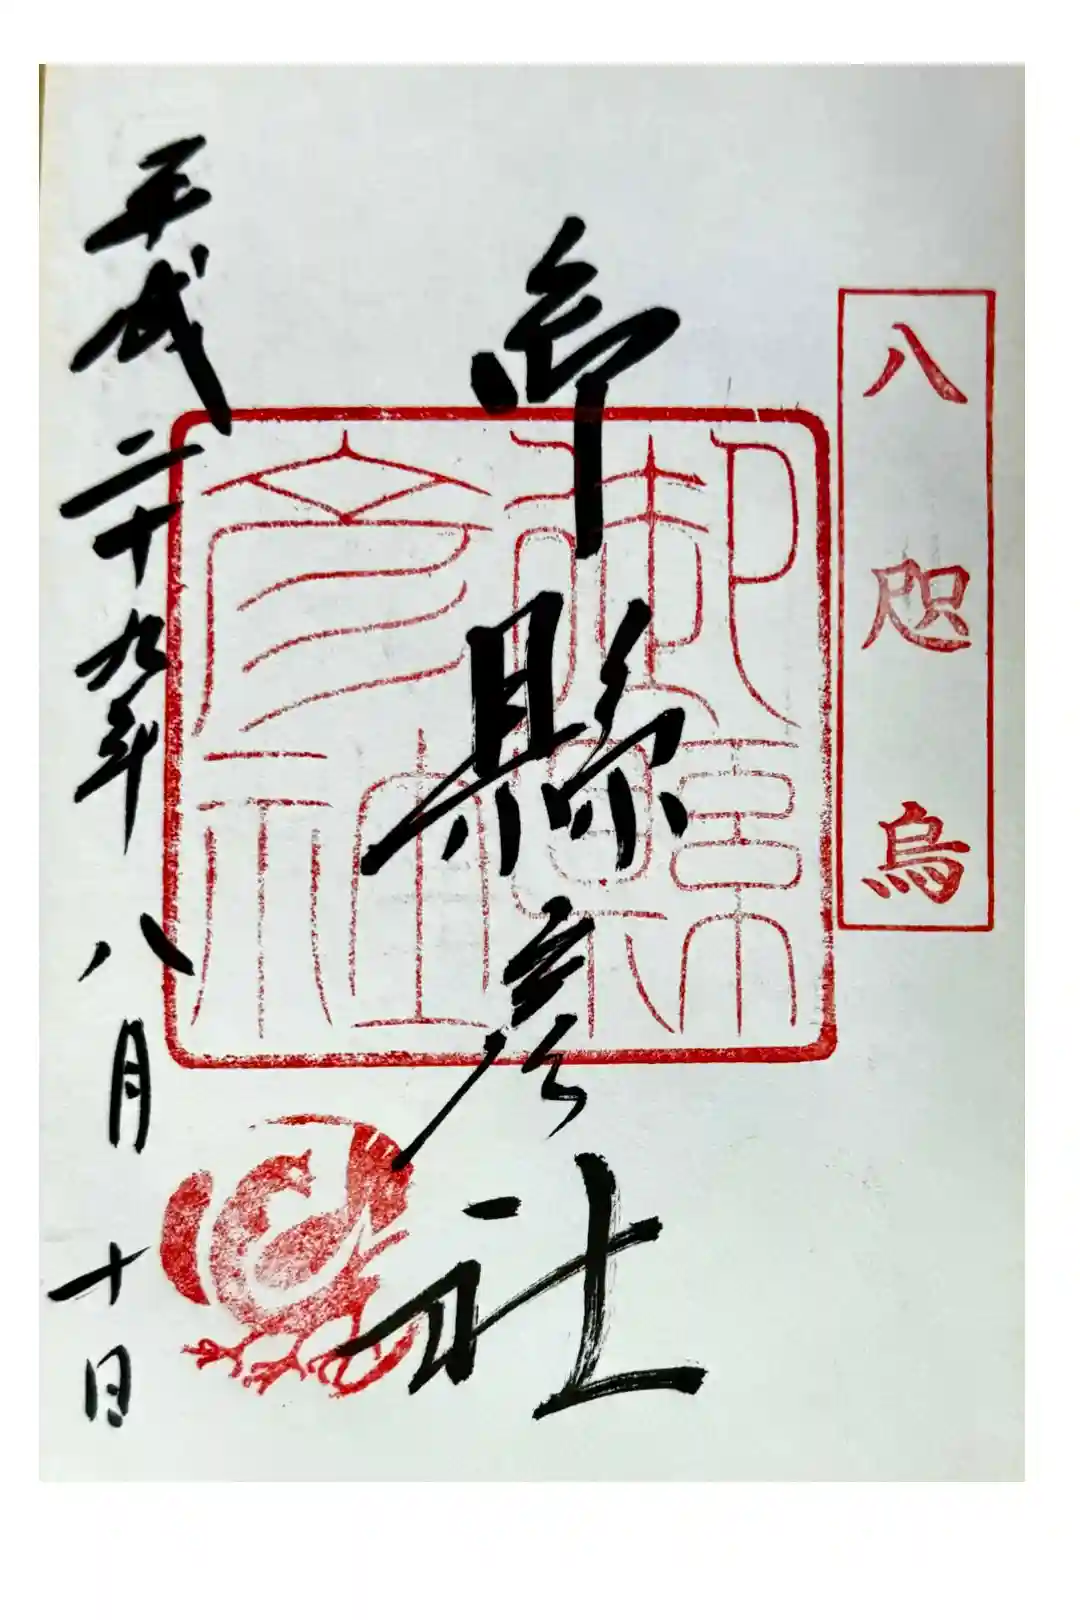 八咫烏
御縣彦社
御縣
彦社
平成二十九年八月十日